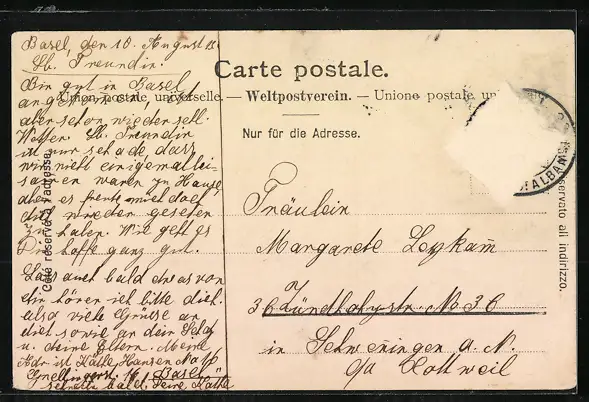 Basel, den 10. August
Lb. Freundin.
Bin gut in Basel
angekommen, jetzt
aber schon wieder
Wetter. Lb. Freundin
ist nur schade, dass
wir nicht einigemal
waren zu Hause,
aber es freute mich doch
dich wieder gesehen
zu haben. Wie geht es
Dir hoffe ganz gut.
Lass auch bald etwas von
dir hören ich bitte dich.
also viele Grüsse an
dich sowie an dein Schatz
u. deine Eltern. Meine
Adr. ist Käthe Hansen
Basel
schreibe bald Deine Käthe
Carte postale.
Union postale universelle. — Weltpostverein. — Unione postale un
Nur für die Adresse.
Côté réservé à l'adresse.
riservato all indirizzo.
ALBAN
Fräulein
Margarete Leykam̄
36
in Schwenningen a. N.
Rottweil